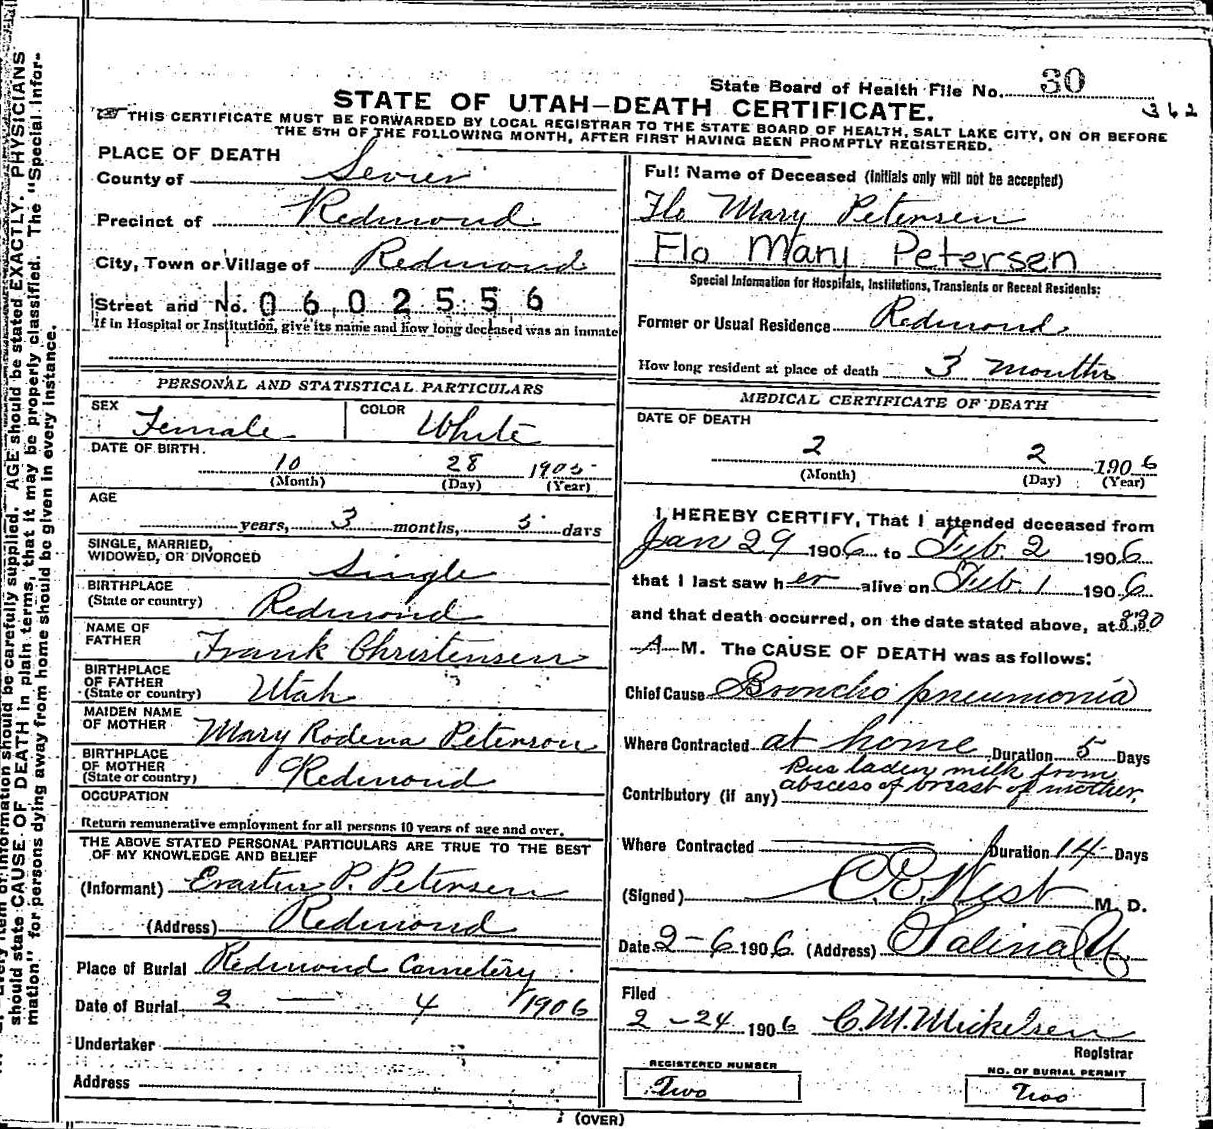 State Board of Health File No. 30
362
STATE OF UTAH—DEATH CERTIFICATE.
THIS CERTIFICATE MUST BE FORWARDED BY LOCAL REGISTRAR TO THE STATE BOARD OF HEALTH, SALT LAKE CITY, ON OR BEFORE
THE 5TH OF THE FOLLOWING MONTH, AFTER FIRST HAVING BEEN PROMPTLY REGISTERED.
PLACE OF DEATH
County of Sevier
Precinct of Redmond
City, Town or Village of Redmond
Street and No. 0602556
If in Hospital or Institution, give its name and how long deceased was an inmate
PERSONAL AND STATISTICAL PARTICULARS
SEX Female COLOR White
DATE OF BIRTH.
10 28 1905
(Month) (Day) (Year)
AGE
years, 3 months, 5 days
SINGLE, MARRIED,
WIDOWED, OR DIVORCED Single
BIRTHPLACE
(State or country) Redmond
NAME OF
FATHER Frank Christensen
BIRTHPLACE
OF FATHER
(State or country) Utah
MAIDEN NAME
OF MOTHER Mary Rodena Peterson
BIRTHPLACE
OF MOTHER
(State or country) Redmond
OCCUPATION
Return remunerative employment for all persons 10 years of age and over.
THE ABOVE STATED PERSONAL PARTICULARS ARE TRUE TO THE BEST
OF MY KNOWLEDGE AND BELIEF
(Informant) Erastus P. Petersen
(Address) Redmond
Place of Burial Redmond Cemetery
Date of Burial 2 — 4 1906
Undertaker
Address
Full Name of Deceased (Initials only will not be accepted)
Flo Mary Petersen
Flo Mary Petersen
Special Information for Hospitals, Institutions, Transients or Recent Residents:
Former or Usual Residence Redmond
How long resident at place of death 3 months
MEDICAL CERTIFICATE OF DEATH
DATE OF DEATH
2 2 1906
(Month) (Day) (Year)
I HEREBY CERTIFY, That I attended deceased from
Jan 29 1906 to Feb. 2 1906
that I last saw her alive on Feb. 1 1906
and that death occurred, on the date stated above, at 8.30
A M. The CAUSE OF DEATH was as follows:
Chief Cause Broncho pneumonia
Where Contracted at home Duration 5 Days
Pus laden milk from
Contributory (if any) abscess of breast of mother.
Where Contracted Duration 14 Days
(Signed) C.E. West M. D.
Date 2-6 1906. (Address) Salina U.
Filed
2-24 1906 C.M. Mickelsen
Registrar
REGISTERED NUMBER
Two
NO. OF BURIAL PERMIT
Two
(OVER)
Every item of information should be carefully supplied. AGE should be stated EXACTLY. PHYSICIANS
should state CAUSE OF DEATH in plain terms, that it may be properly classified. The "Special Infor-
mation" for persons dying away from home should be given in every instance.